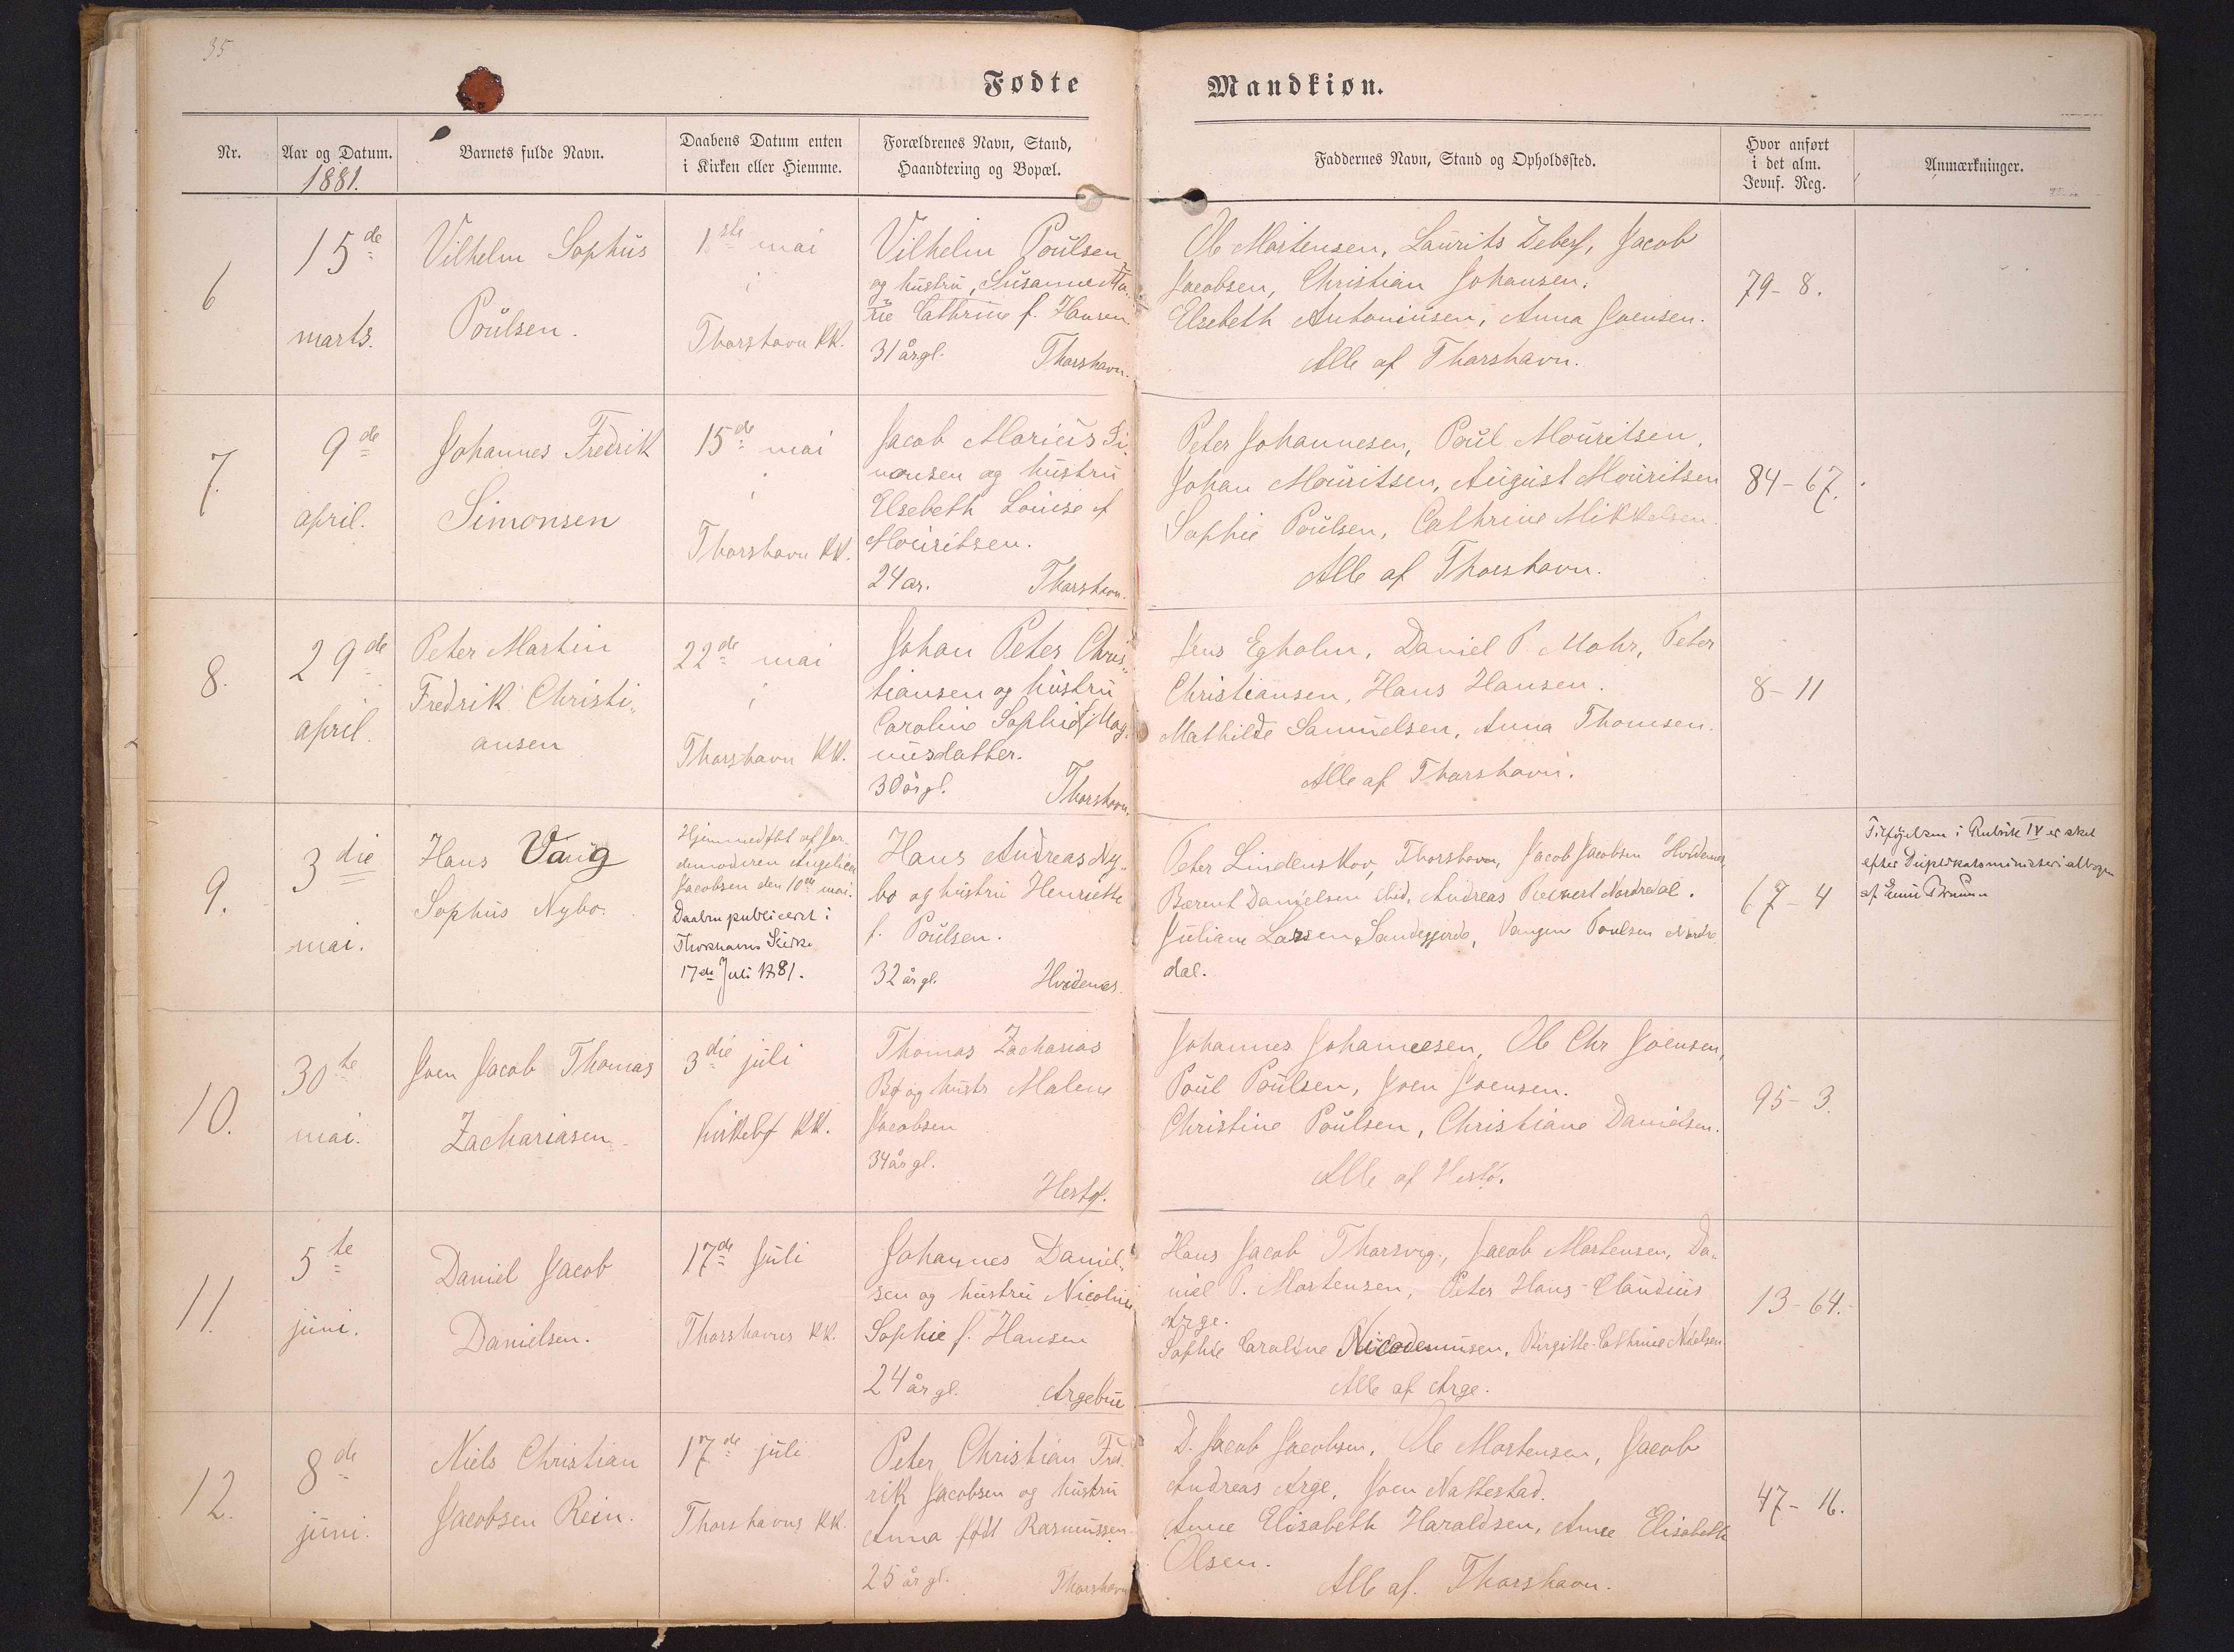 35
Fødte Mandkiøn.
Nr.
Aar og Datum.
1881.
Barnets fulde Navn.
Daabens Datum enten
i Kirken eller Hiemme.
Forældrenes Navn, Stand,
Haandtering og Bopæl.
Faddernes Navn, Stand og Opholdssted.
Hvor anført
i det alm.
Jevnf. Reg.
Anmærkninger.
6
15de
marts.
Vilhelm Sophus
Poulsen.
1ste mai
i
Thorshavn KK.
Vilhelm Poulsen
og hustru, Susanne Ma-
rie Cathrine f. Hansen
31 år gl.
Thorshavn.
Ole Mortensen, Laurits Deberf, Jacob
Jacobsen, Christian Johansen.
Elsebeth Antoniusen, Anna Joensen.
Alle af Thorshavn.
79-8.
7.
9de
april.
Johannes Fredrik
Simonsen
15de mai
i
Thorshavn KK.
Jacob Marius Si-
monsen og hustru
Elsebeth Louise f
Mouritsen.
24 år.
Thorshavn.
Peter Johannesen, Poul Mouritsen,
Johan Mouritsen, August Mouritsen
Sophie Poulsen, Cathrine Mikkelsen.
Alle af Thorshavn.
84-67.
8.
29de
april.
Peter Martin
Fredrik Christi-
ansen
22de mai
i
Thorshavn KK.
Johan Peter Chris-
tiansen og hustru
Caroline Sophie f Mag-
nusdatter.
30 år gl.
Thorshavn.
Jens Egholm, Daniel P. Mohr, Peter
Christiansen, Hans Hansen.
Mathilde Samuelsen, Anna Thomsen.
Alle af Thorshavn.
8-11
9.
3die
mai.
Hans Vang
Sophus Nybo.
Hjemmedøbt af Jor-
demoderen Angelica
Jacobsen den 10de mai.
Daaben publiceret i
Thorshavns Kirke
17de Juli 1881.
Hans Andreas Ny-
bo og hustru Henriette
f. Poulsen.
32 år gl.
Hvidenes.
Peter Lindenskov, Thorshavn, Jacob Jacobsen Hvidenes,
Berent Danielsen ibid, Andreas Reinert Nordredal.
Juliane Larsen Sandegjerde, Vangine Poulsen Nordre
dal.
67-4
Tilføjelsen i Rubrik IV er sket
efter Duplikatsministerialbogen
af
10.
30te
mai.
Joen Jacob Thomas
Zachariasen
3die juli
Kirkebø KK.
Thomas Zacharias
Bø og hustr Malene
Jacobsen
34 år gl.
Hestø.
Johannes Johannesen, Ole Chr Joensen,
Poul Poulsen, Joen Joensen.
Christine Poulsen, Christiane Danielsen.
Alle af Hestø.
95-3.
11.
5te
juni.
Daniel Jacob
Danielsen.
17de Juli
Thorshavns KK.
Johannes Daniel-
sen og hustru Nicoline
Sophie f. Hansen
24 år gl.
Argebu
Hans Jacob Thorsvig, Jacob Mortensen, Da-
niel P. Mortensen, Peter Hans Claudius
Arge.
Sophie Caroline Nicodemusen, Birgitte Cathrine Nielsen
Alle af Arge.
13-64.
12.
8de
juni.
Niels Christian
Jacobsen Rein.
17de juli
Thorshavns KK.
Peter Christian Fred-
rik Jacobsen og hustru
Anna født Rasmussen.
25 år gl.
Thorshavn
D. Jacob Jacobsen, Ole Mortensen, Jacob
Andreas Arge, Joen Nattestad.
Anne Elisabeth Haraldsen, Anne Elisabeth
Olsen.
Alle af Thorshavn.
47-16.